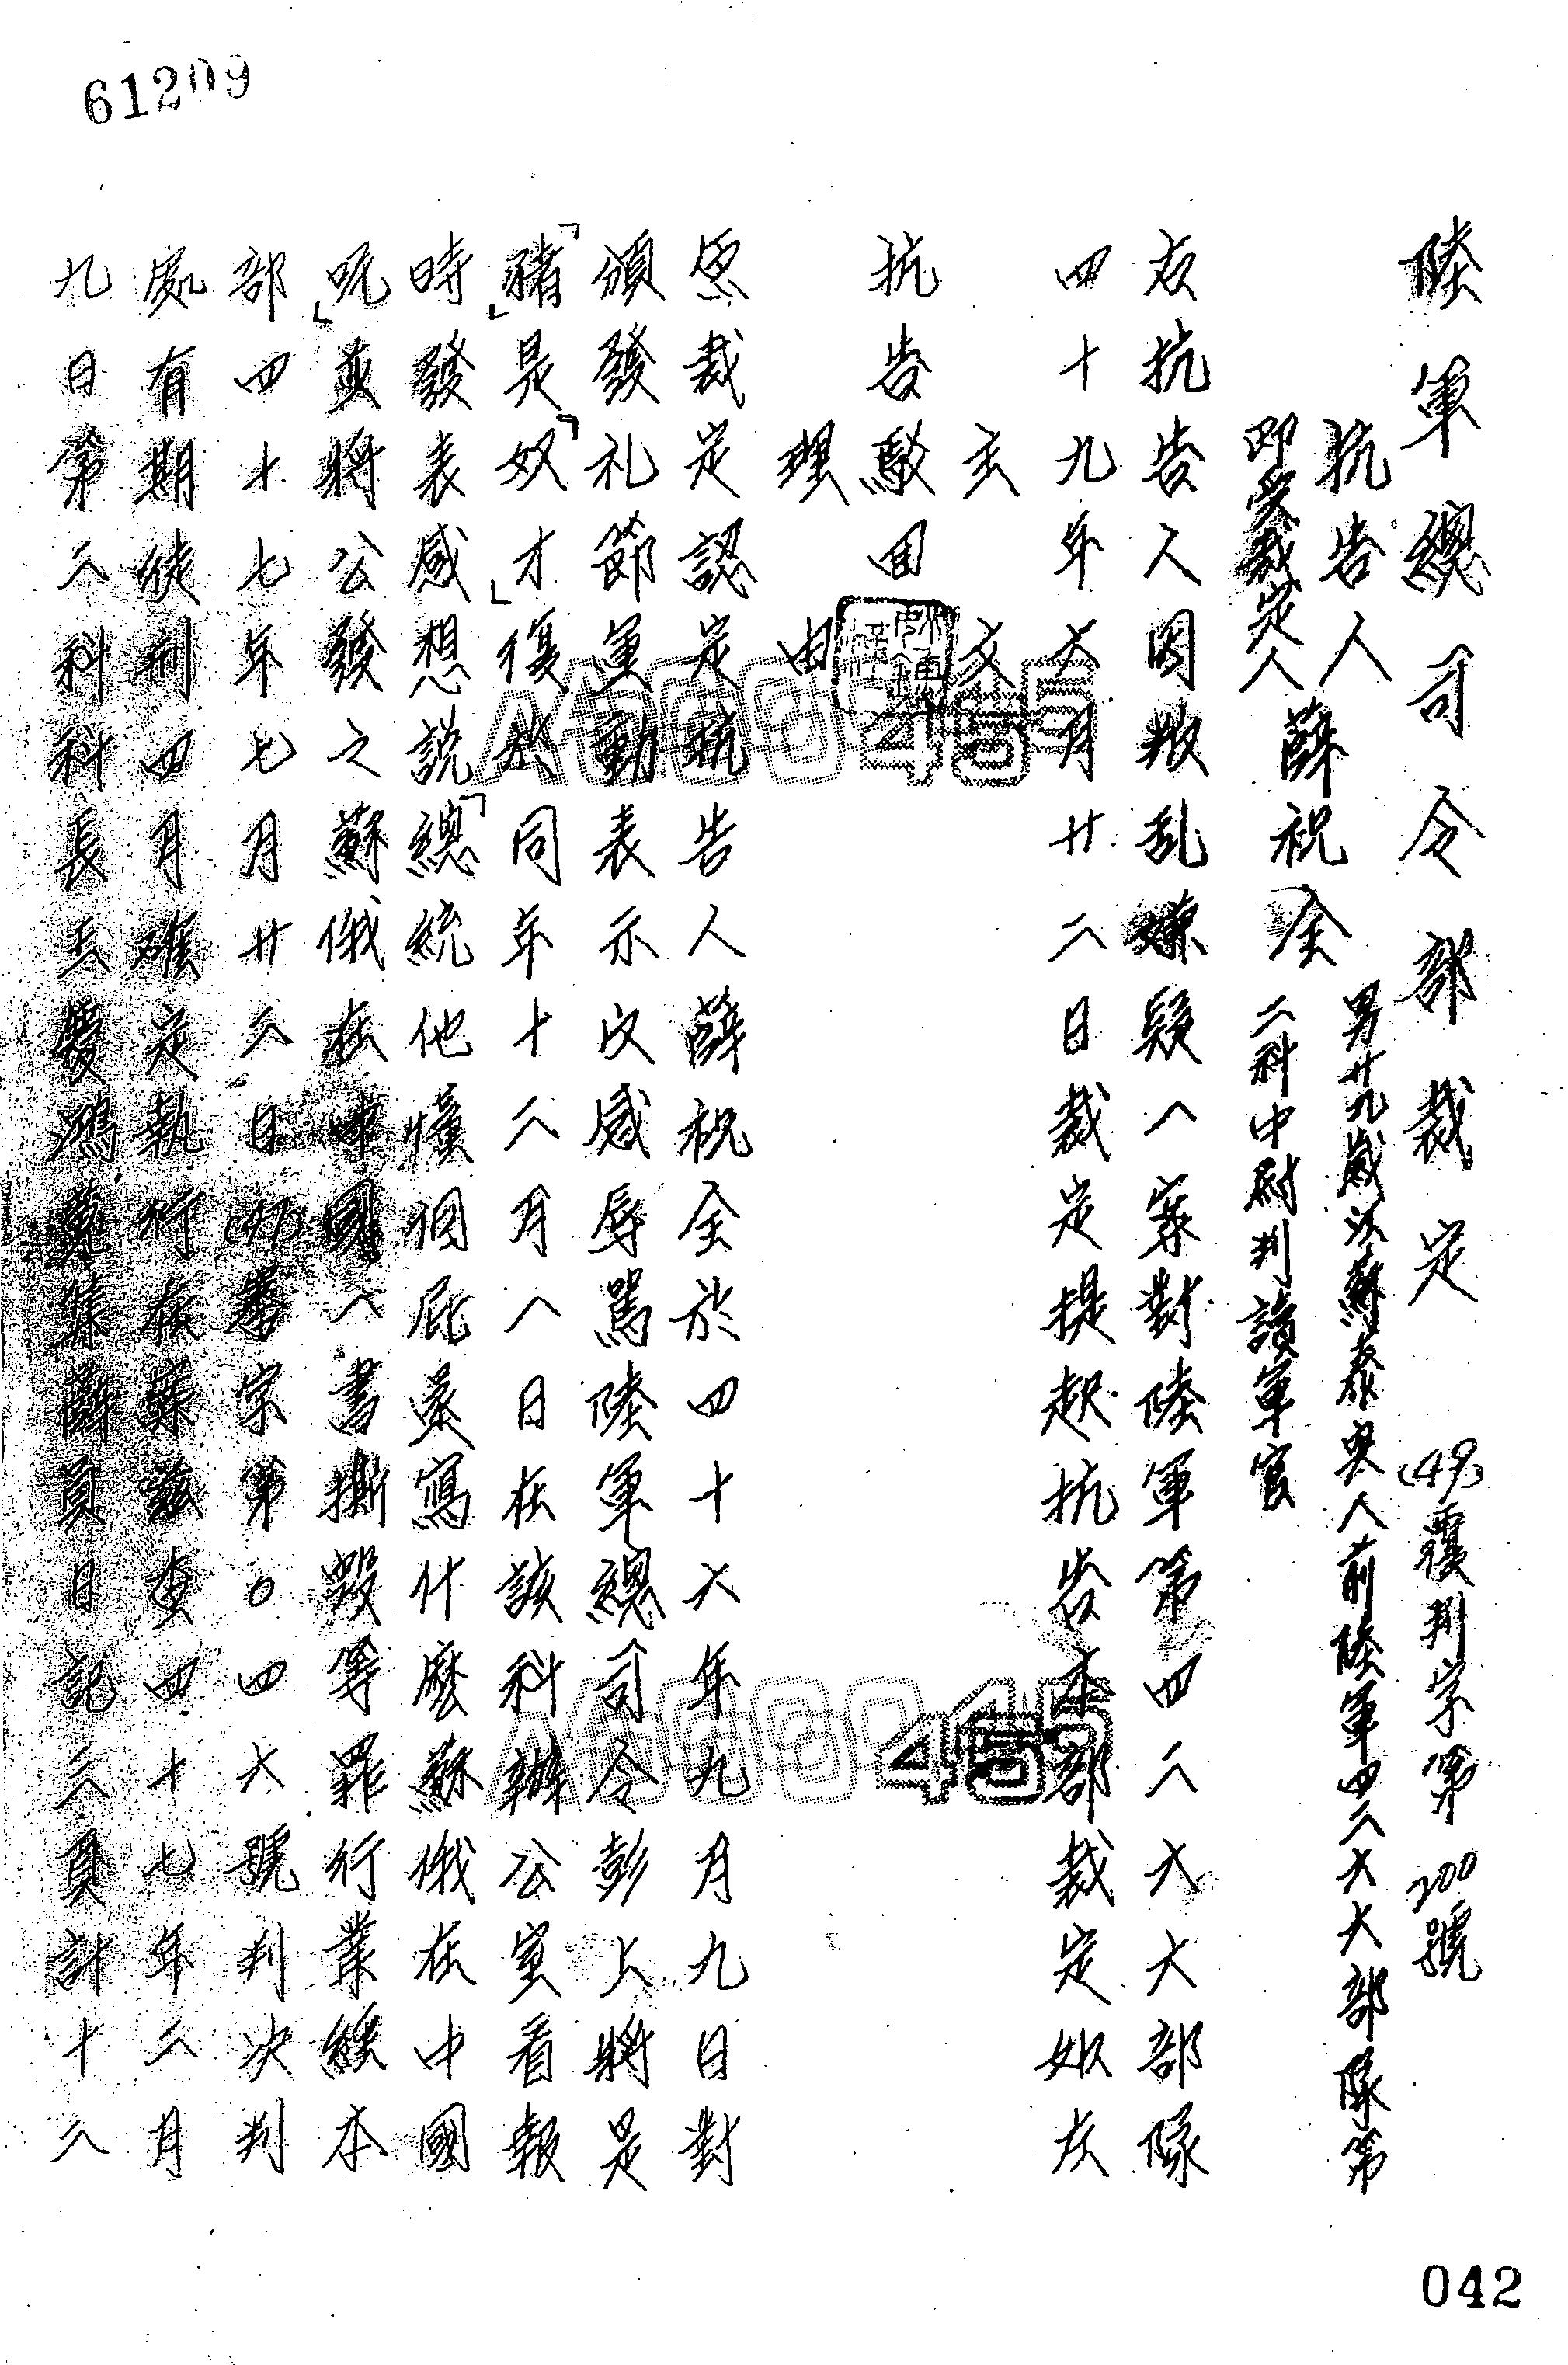 61209
陸軍總司令部裁定 (49)覆判字第200號
抗告人
即受裁定人 薛祝全 男廿九歲江蘇泰興人前陸軍四二六大部隊第
二科中尉判讀軍官
右抗告人因叛乱嫌疑一案對陸軍第四二六大部隊
四十九年六月廿二日裁定提起抗告本部裁定如左
主文
抗告駁回
理由
原裁定認定抗告人薛祝全於四十六年九月九日對
頒發礼節運動表示反感辱罵陸軍總司令彭上將是
「豬」是「奴才」復於同年十二月八日在該科辦公室看報
時發表感想說「總統他懂個屁還寫什麼蘇俄在中國
呢」並將公發之蘇俄在中國一書撕毀等罪行業經本
部四十七年七月廿三日(47)審字第0四六號判決判
處有期徒刑四月確定執行在案茲查四十七年二月
九日第二科科長王慶鴻蒐集薛員日記二頁計十二
A000245
A000245
042